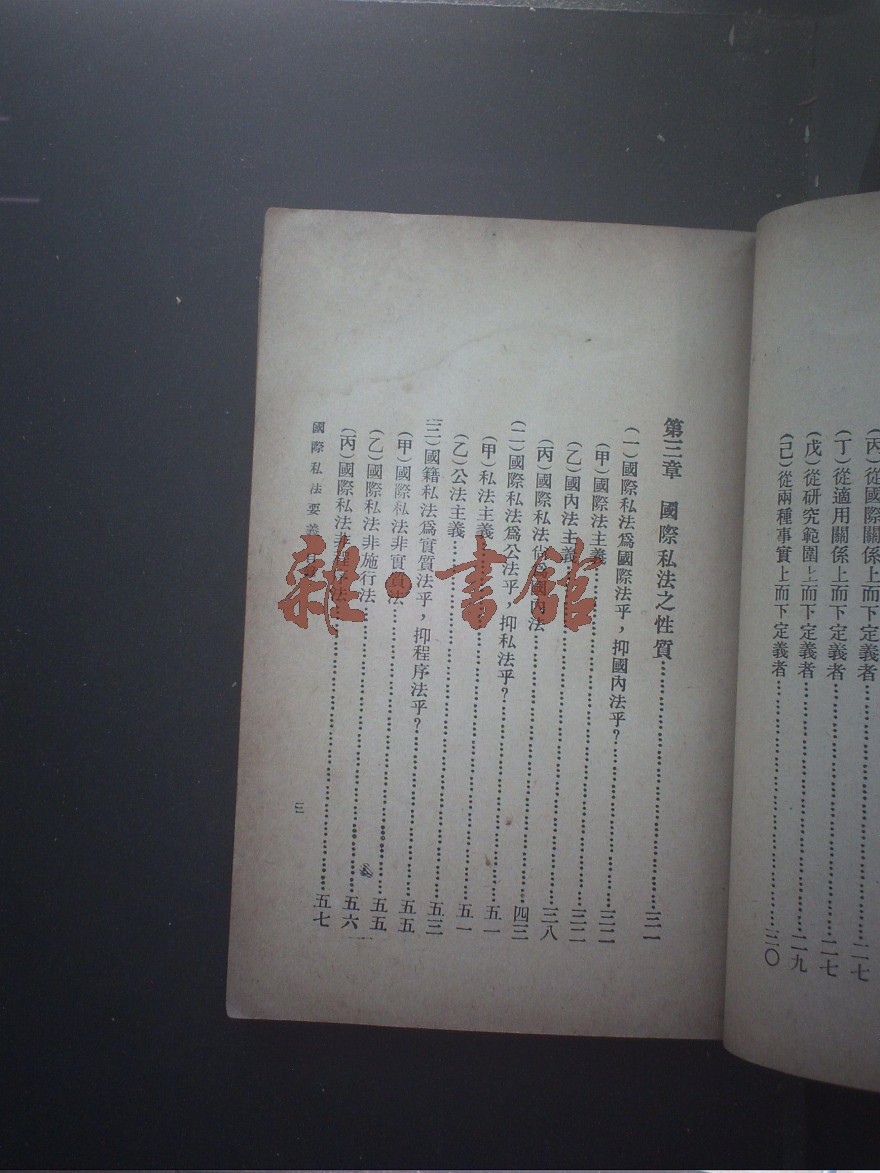 (丙)從國際關係上而下定義者……二七
(丁)從適用關係上而下定義者……二七
(戊)從研究範圍上而下定義者……二九
(己)從兩種事實上而下定義者……三〇
第三章 國際私法之性質……三一
(一)國際私法爲國際法乎,抑國內法乎?……三二
(甲)國際法主義……三二
(乙)國內法主義……三八
(丙)國際私法尙爲國內法……四三
(二)國際私法爲公法乎,抑私法乎?……五一
(甲)私法主義……五一
(乙)公法主義……五三
(三)國籍私法爲實質法乎,抑程序法乎?……五五
(甲)國際私法非實質法……五五
(乙)國際私法非施行法……五六
(丙)國際私法非程序法……五七
國際私法要義
三
雜·書館